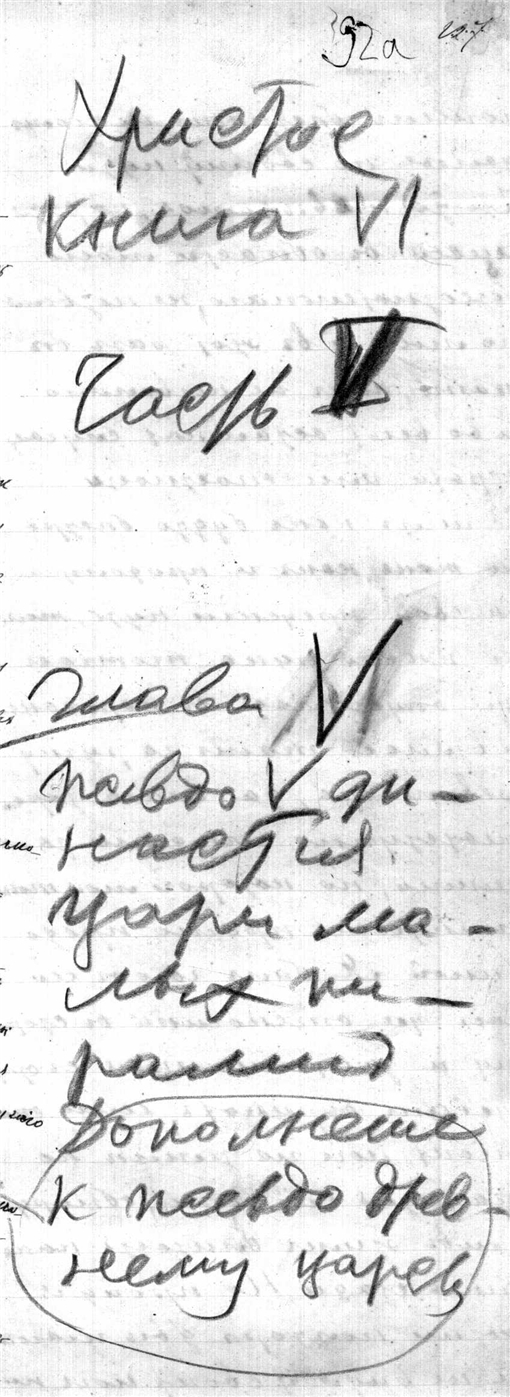 92а
Христос
книга VI
Часть V
Глава V
псевдо V ди-
настия
Цари ма-
лых пи-
рамид
Дополнение
к псевдо древ-
нему царств